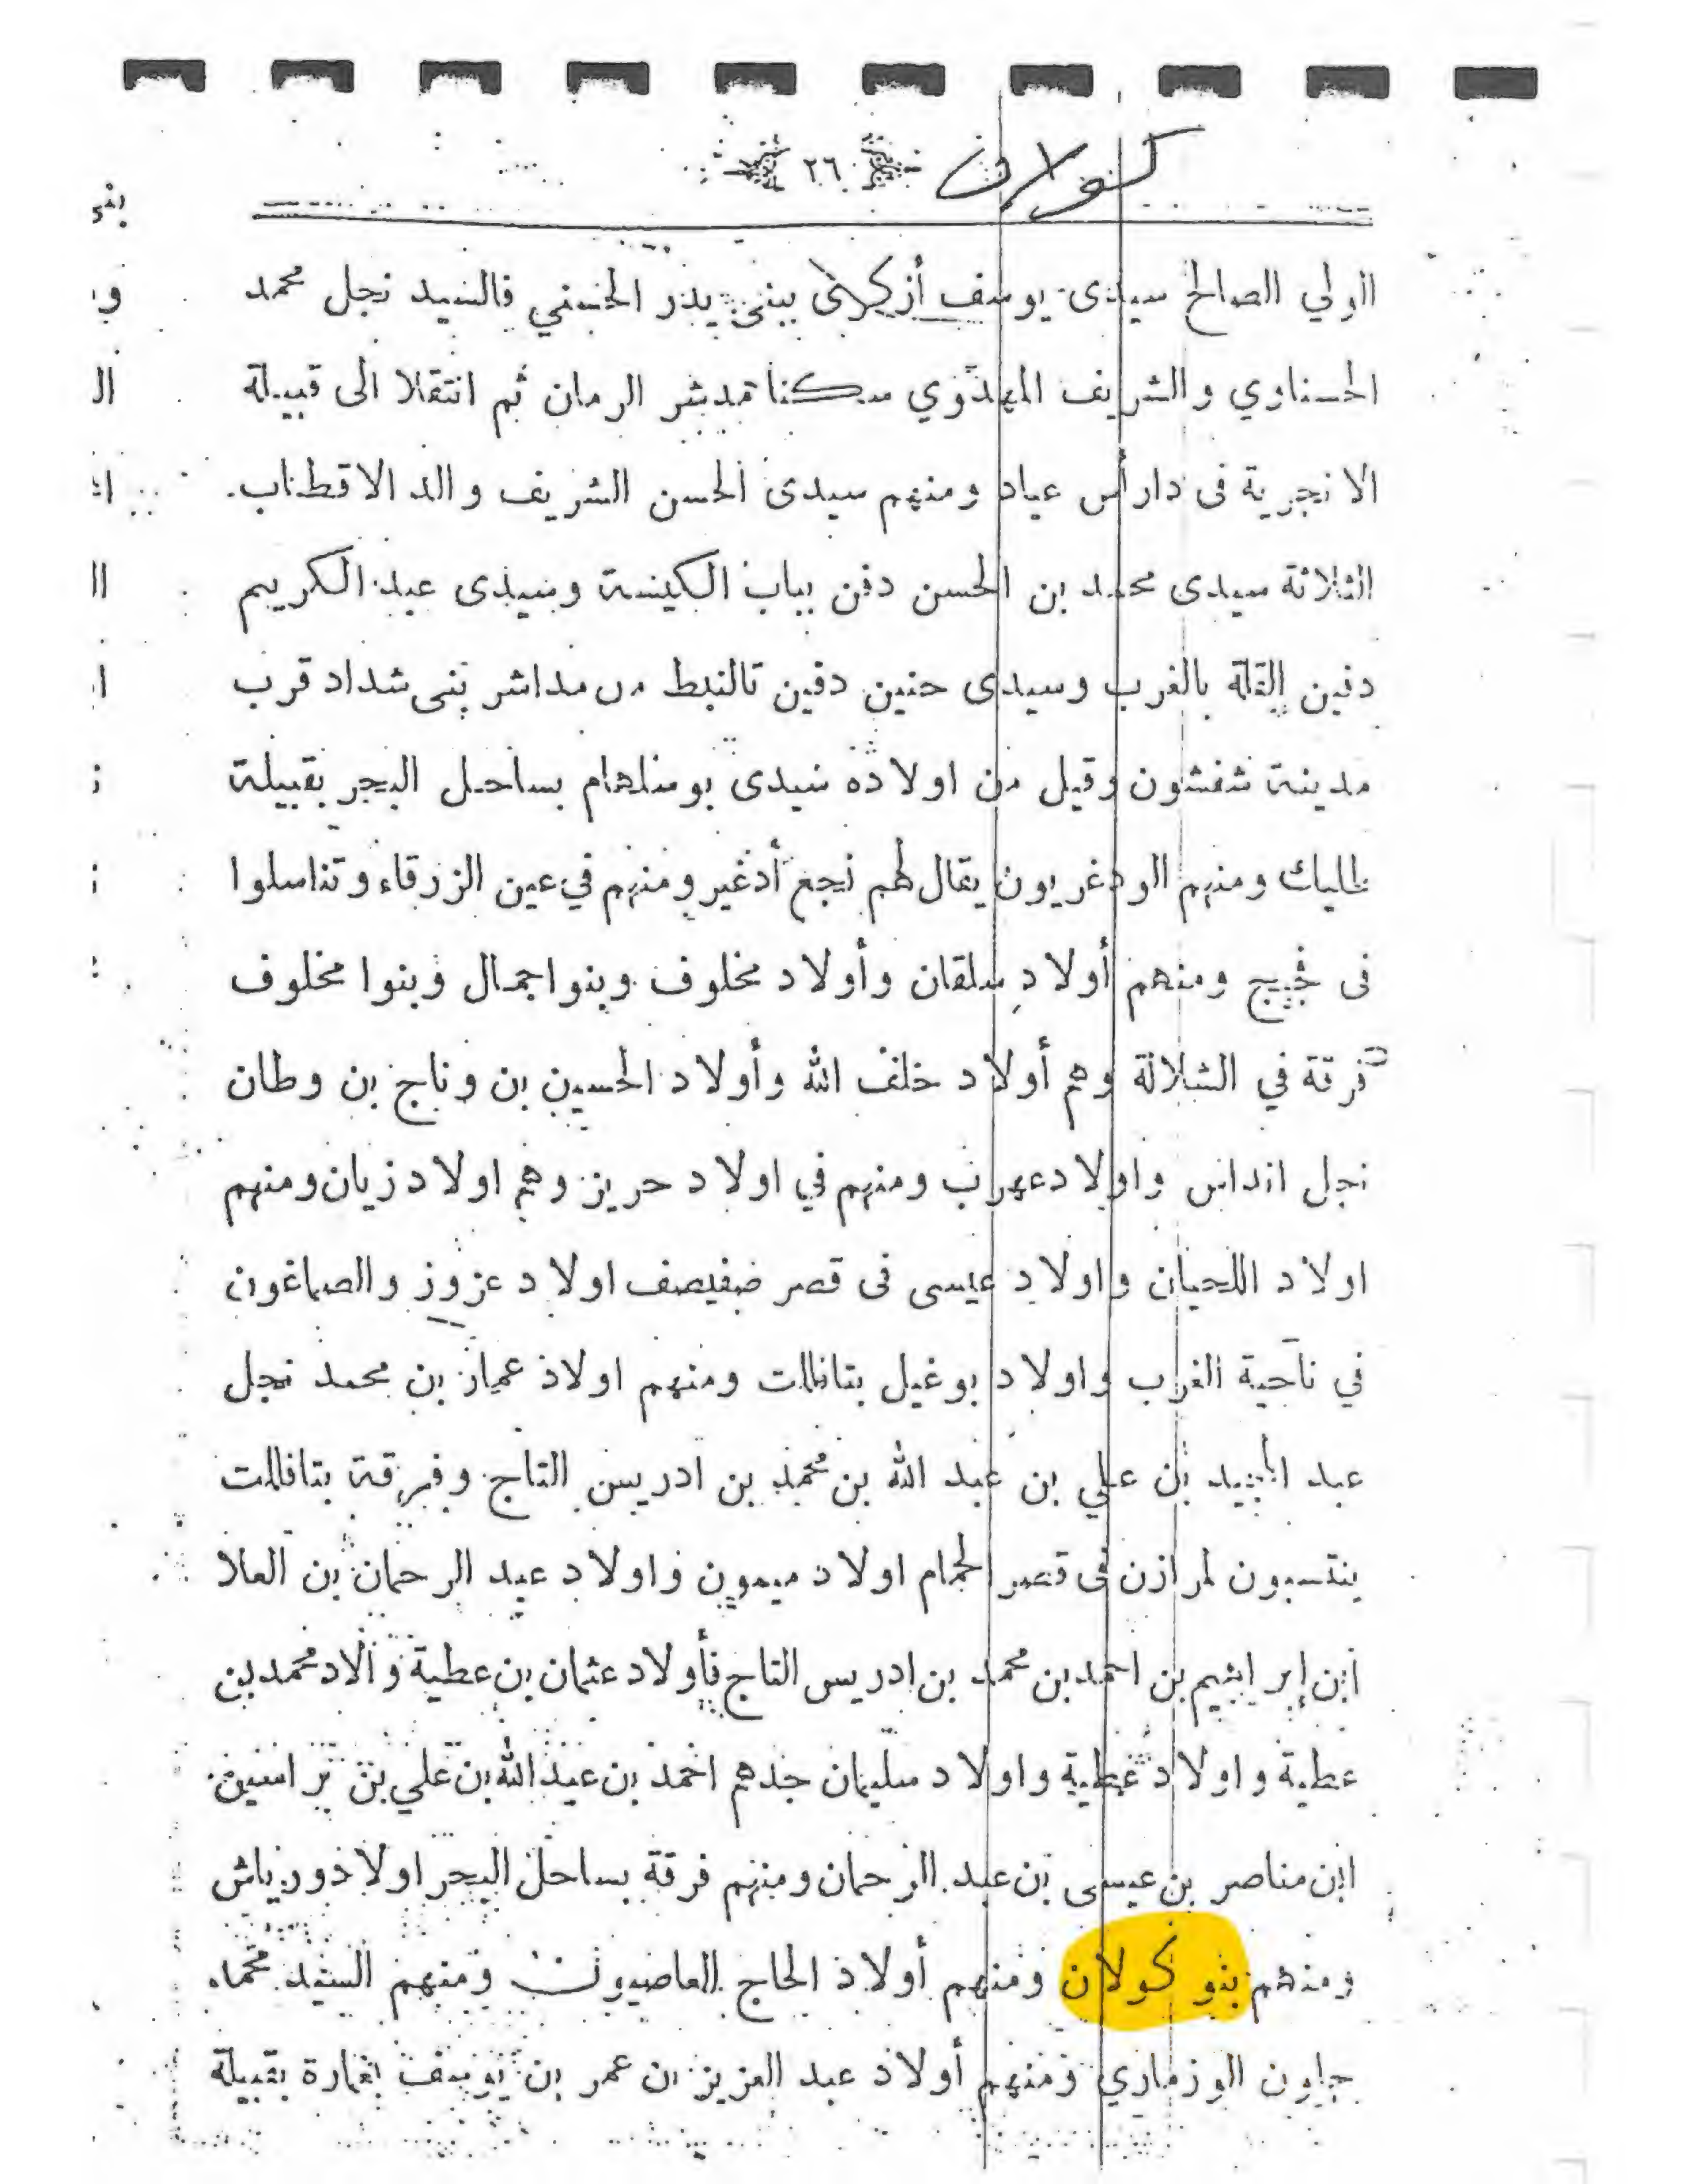 كولان ٢٦
الولي الصالح سيدى يوسف ببنى يدر الحسني فالسيد نجل محمد
الحسناوي والشريف سكنا مدشر الرمان ثم انتقلا الى قبيلة
الانجرية فى دار أس عياد ومنهم سيدى الحسن الشريف والد الاقطاب
الثلاثة سيدى محمد بن الحسن دفن بباب الكيسة وسيدى عبد الكريم
دفين القلة بالغرب وسيدى حنين دفين من مداشر بنى شداد قرب
مدينة شفشون وقيل من اولاده سيدى بوسلهام بساحل البحر بقبيلة
طليك ومنهم الودغريون يقال لهم نجع أدغير ومنهم في عين الزرقاء وتناسلوا
فى ومنهم أولاد سلقان وأولاد مخلوف وبنوا جمال وبنوا مخلوف
فرقة في الشلالة وهم أولاد خلف الله وأولاد الحسين بن وناج بن وطان
نجل انداس واولاد ومنهم في اولاد حريز وهم اولاد زيان ومنهم
اولاد اللحيان واولاد عيسى فى قصر ضفيصف اولاد عزوز والصماغون
في ناحية الغرب واولاد بوغيل بتافلالت ومنهم اولاد عمار بن محمد نجل
عبد بن علي بن عبد الله بن محمد بن ادريس التاج وفرقة بتافلالت
ينتسبون لمرازن فى قصر الحمام اولاد ميمون واولاد عبد الرحمان بن العلا
ابن إبراهيم بن احمد بن محمد بن ادريس التاج فأولاد عثمان بن عطية وألاد محمد بن
عطية واولاد عطية واولاد سليمان جدهم احمد بن عبد الله بن علي بن
ابن مناصر بن عيسى بن عبد الرحمان ومنهم فرقة بساحل البحر اولاد
ومنهم بنو كولان ومنهم أولاد الحاج العاصيون ومنهم السيد محمد
جلون الوزماري ومنهم أولاد عبد العزيز بن عمر بن يوسف بغمارة بقبيلة